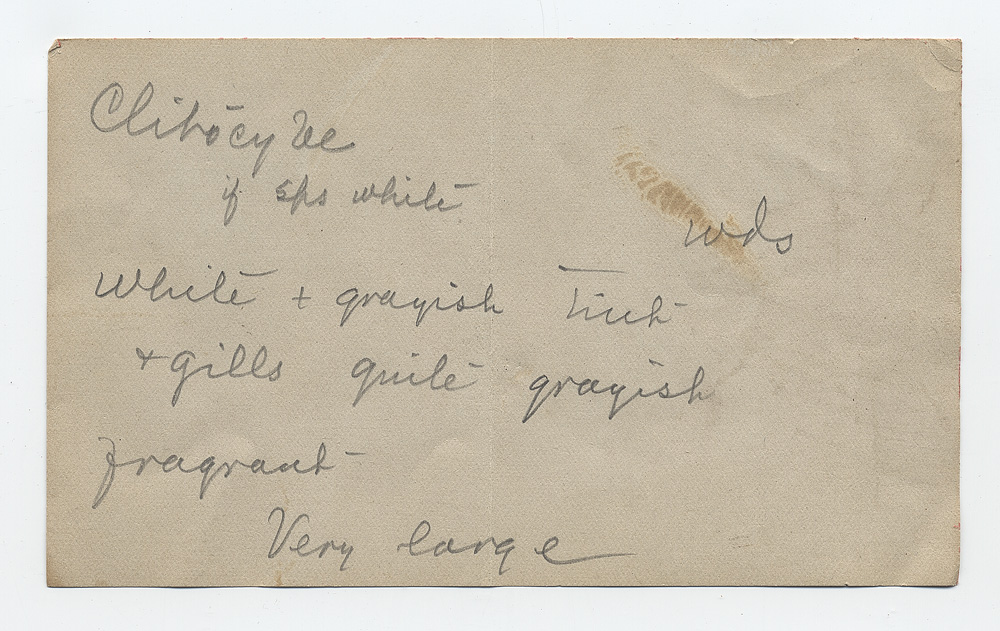 Clitocybe
if sps white
wds
white + grayish tint
+ gills quite grayish
fragrant
Very large